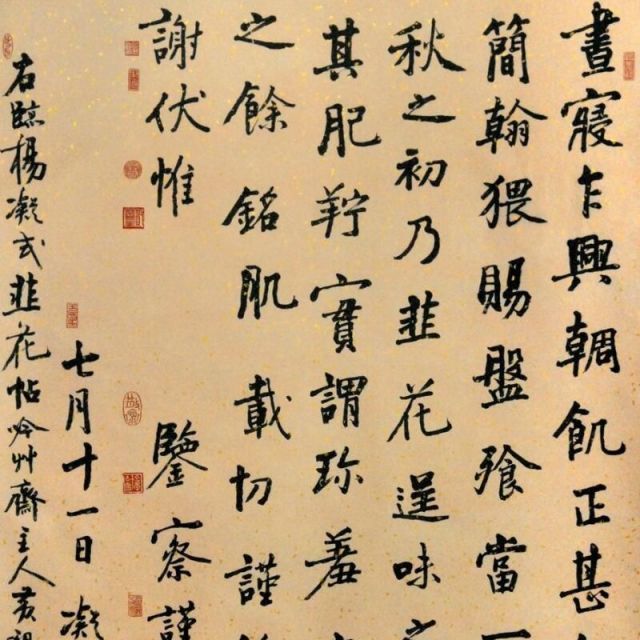 晝寢乍興輖飢正甚
簡翰猥賜盤飧當一
秋之初乃韭花逞味之
其肥羜實謂珍羞
之餘銘肌載切謹
謝伏惟 鑒察謹
七月十一日 凝
右臨楊凝式韭花帖吟艸齋主人黃